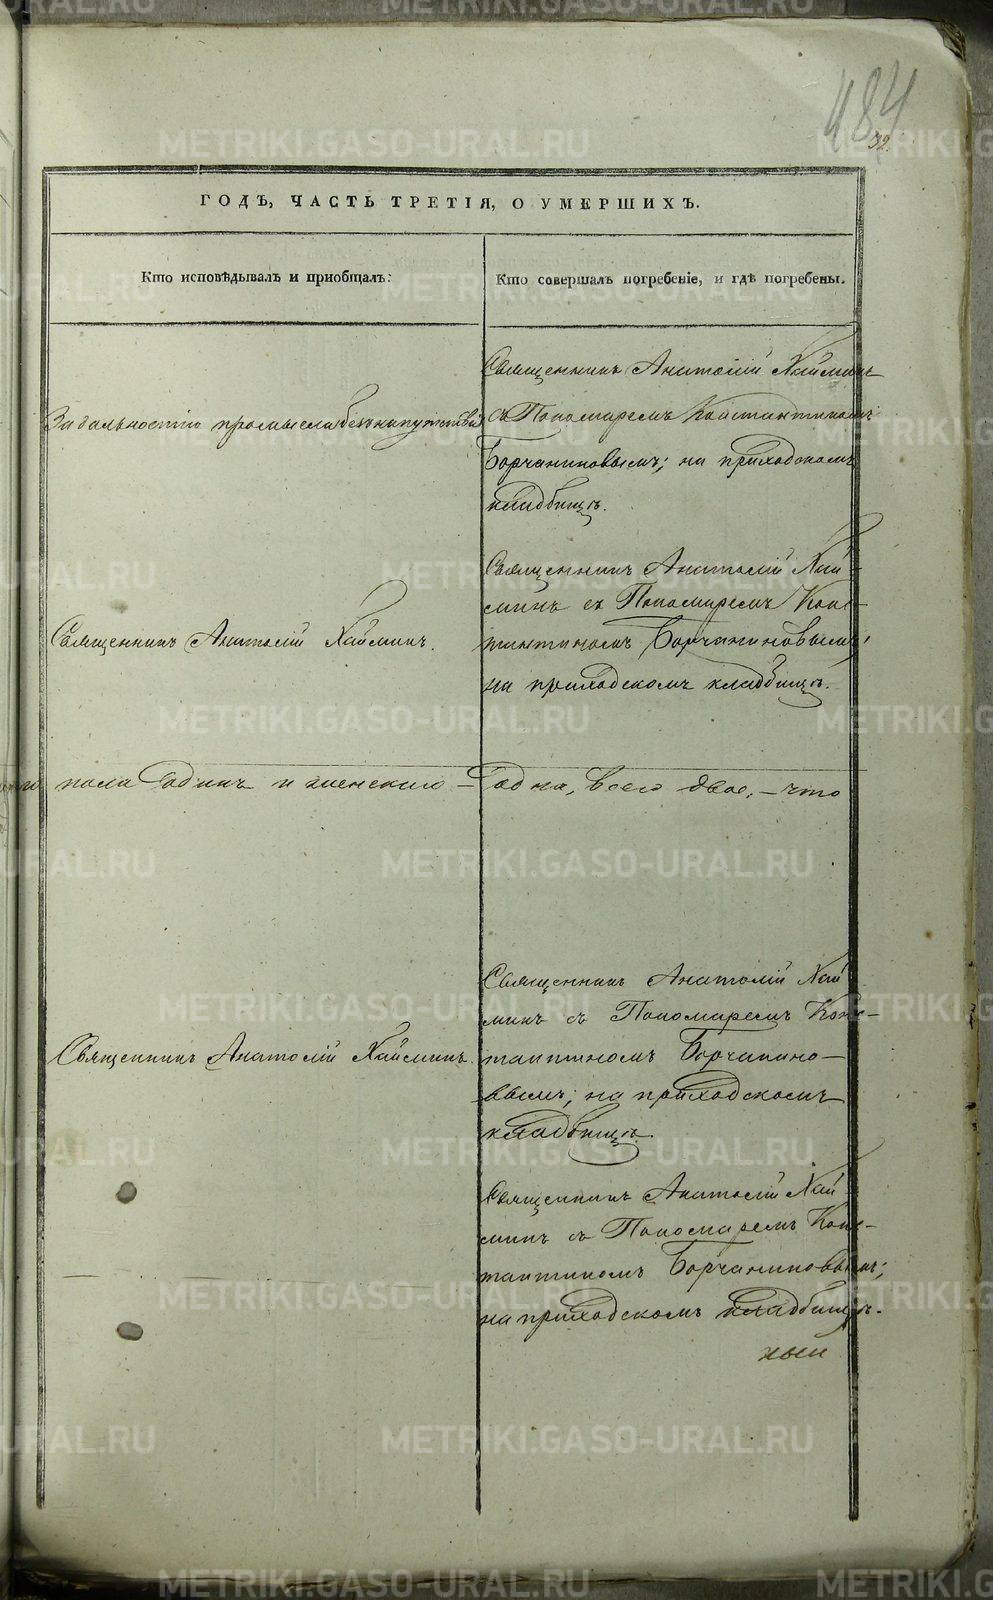 484
32.
ГОДЪ, ЧАСТЬ ТРЕТІЯ, О УМЕРШИХЪ.
Кто исповѣдывалъ и приобщалъ:
Кто совершалъ погребеніе, и гдѣ погребены.
За дальностію промысла безъ напутствія
Священникъ Анатолій Хайминъ
съ Пономаремъ Константиномъ
Борчаниновымъ; на приходскомъ
кладбищѣ.
Священникъ Анатолій Хайминъ.
Священникъ Анатолій Хай-
минъ съ Пономаремъ Конс-
тантиномъ Борчаниновымъ;
на приходскомъ кладбищѣ.
пола Одинъ и женскаго – Одна, всего двое, – что
Священникъ Анатолій Хайминъ.
Священникъ Анатолій Хай
минъ съ Пономаремъ Конс-
тантиномъ Борчанино-
вымъ; на приходскомъ
кладбищѣ.
Священникъ Анатолій Хай
минъ съ Пономаремъ Конс-
тантиномъ Борчаниновымъ;
на приходскомъ кладбищѣ.
METRIKI.GASO-URAL.RU